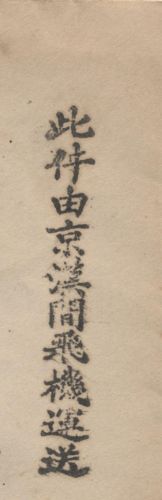 此件由京漢間飛機運送